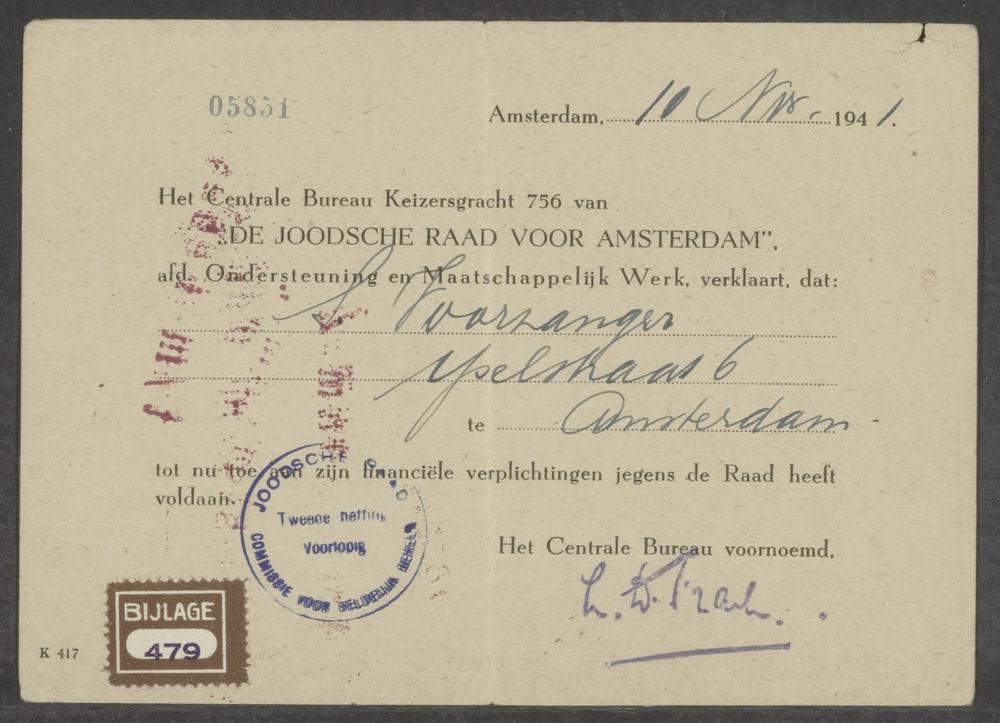 05851
Amsterdam, 10 Nov. 1941.
Het Centrale Bureau Keizersgracht 756 van
„DE JOODSCHE RAAD VOOR AMSTERDAM”,
afd. Ondersteuning en Maatschappelijk Werk, verklaart, dat:
S Voorzanger
Yselstraat 6
te Amsterdam
tot nu toe aan zijn financiële verplichtingen jegens de Raad heeft
voldaan.
JOODSCHE RAAD
Tweede heffing
Voorlopig
COMMISSIE VOOR GELDELIJK BEHEER
Het Centrale Bureau voornoemd,
BIJLAGE
479
K 417